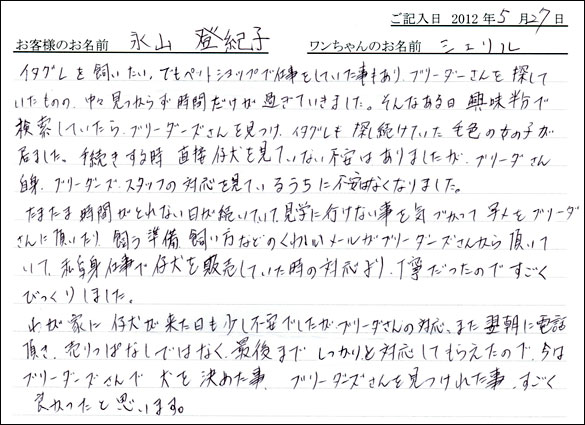 ご記入日 2012年5月27日
お客様のお名前 永山 登紀子 ワンちゃんのお名前 シェリル
イタグレを飼いたい、でもペットショップで仕事をしていた事もあり、ブリーダーさんを探して
いたものの、中々見つからず時間だけが過ぎていきました。そんなある日 興味半分で
検索していたら、ブリーダーズさんを見つけ、イタグレも 探し続けていた毛色の女の子が
居ました。手続きする時 直接仔犬を見ていない不安はありましたが、ブリーダーさん
自身、ブリーダーズ・スタッフの対応を見ているうちに不安はなくなりました。
たまたま時間がとれない日が続いていて、見学に行けない事を気づかって 写メをブリーダー
さんに頂いたり 飼う準備 飼い方などのくわしいメールがブリーダーズさんから頂いて
いて、私自身仕事で仔犬を販売していた時の対応より、丁寧だったのですごく
びっくりしました。
わが家に仔犬が来た日も少し不安でしたが、ブリーダーさんの対応、また翌朝に電話
頂き、売りっぱなしではなく、最後まで しっかりと対応してもらえたので、今は
ブリーダーズさんで 犬を決めた事、ブリーダーズさんを見つけれた事、すごく
良かったと思います。